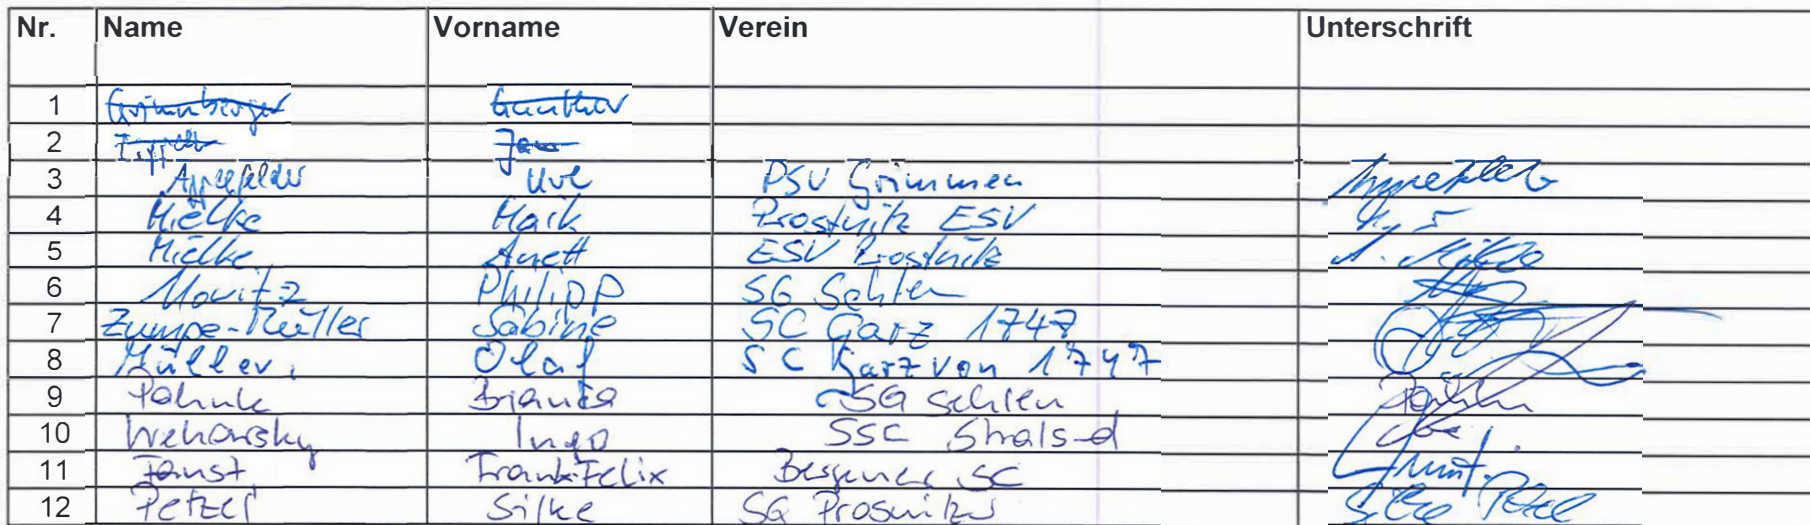 Nr. Name Vorname Verein Unterschrift
1 Grimmberger Gunther
2 Jan
3 Appelfelder Uve PSV Grimmen
4 Mielke Maik Prosnitz ESV
5 Mielke Anett ESV Prosnitz A. Mielke
6 Movitz Philipp SG Sehlen
7 Zumpe-Müller Sabine SC Garz 1747
8 Müller, Olaf SC Garz von 1747
9 Pahnk Bianka SG Sehlen
10 Wehowsky Ingo SSC Strals-d
11 Faust Frank-Felix Bergener SC
12 Petzel Silke SG Prosnitz Silke Petzel